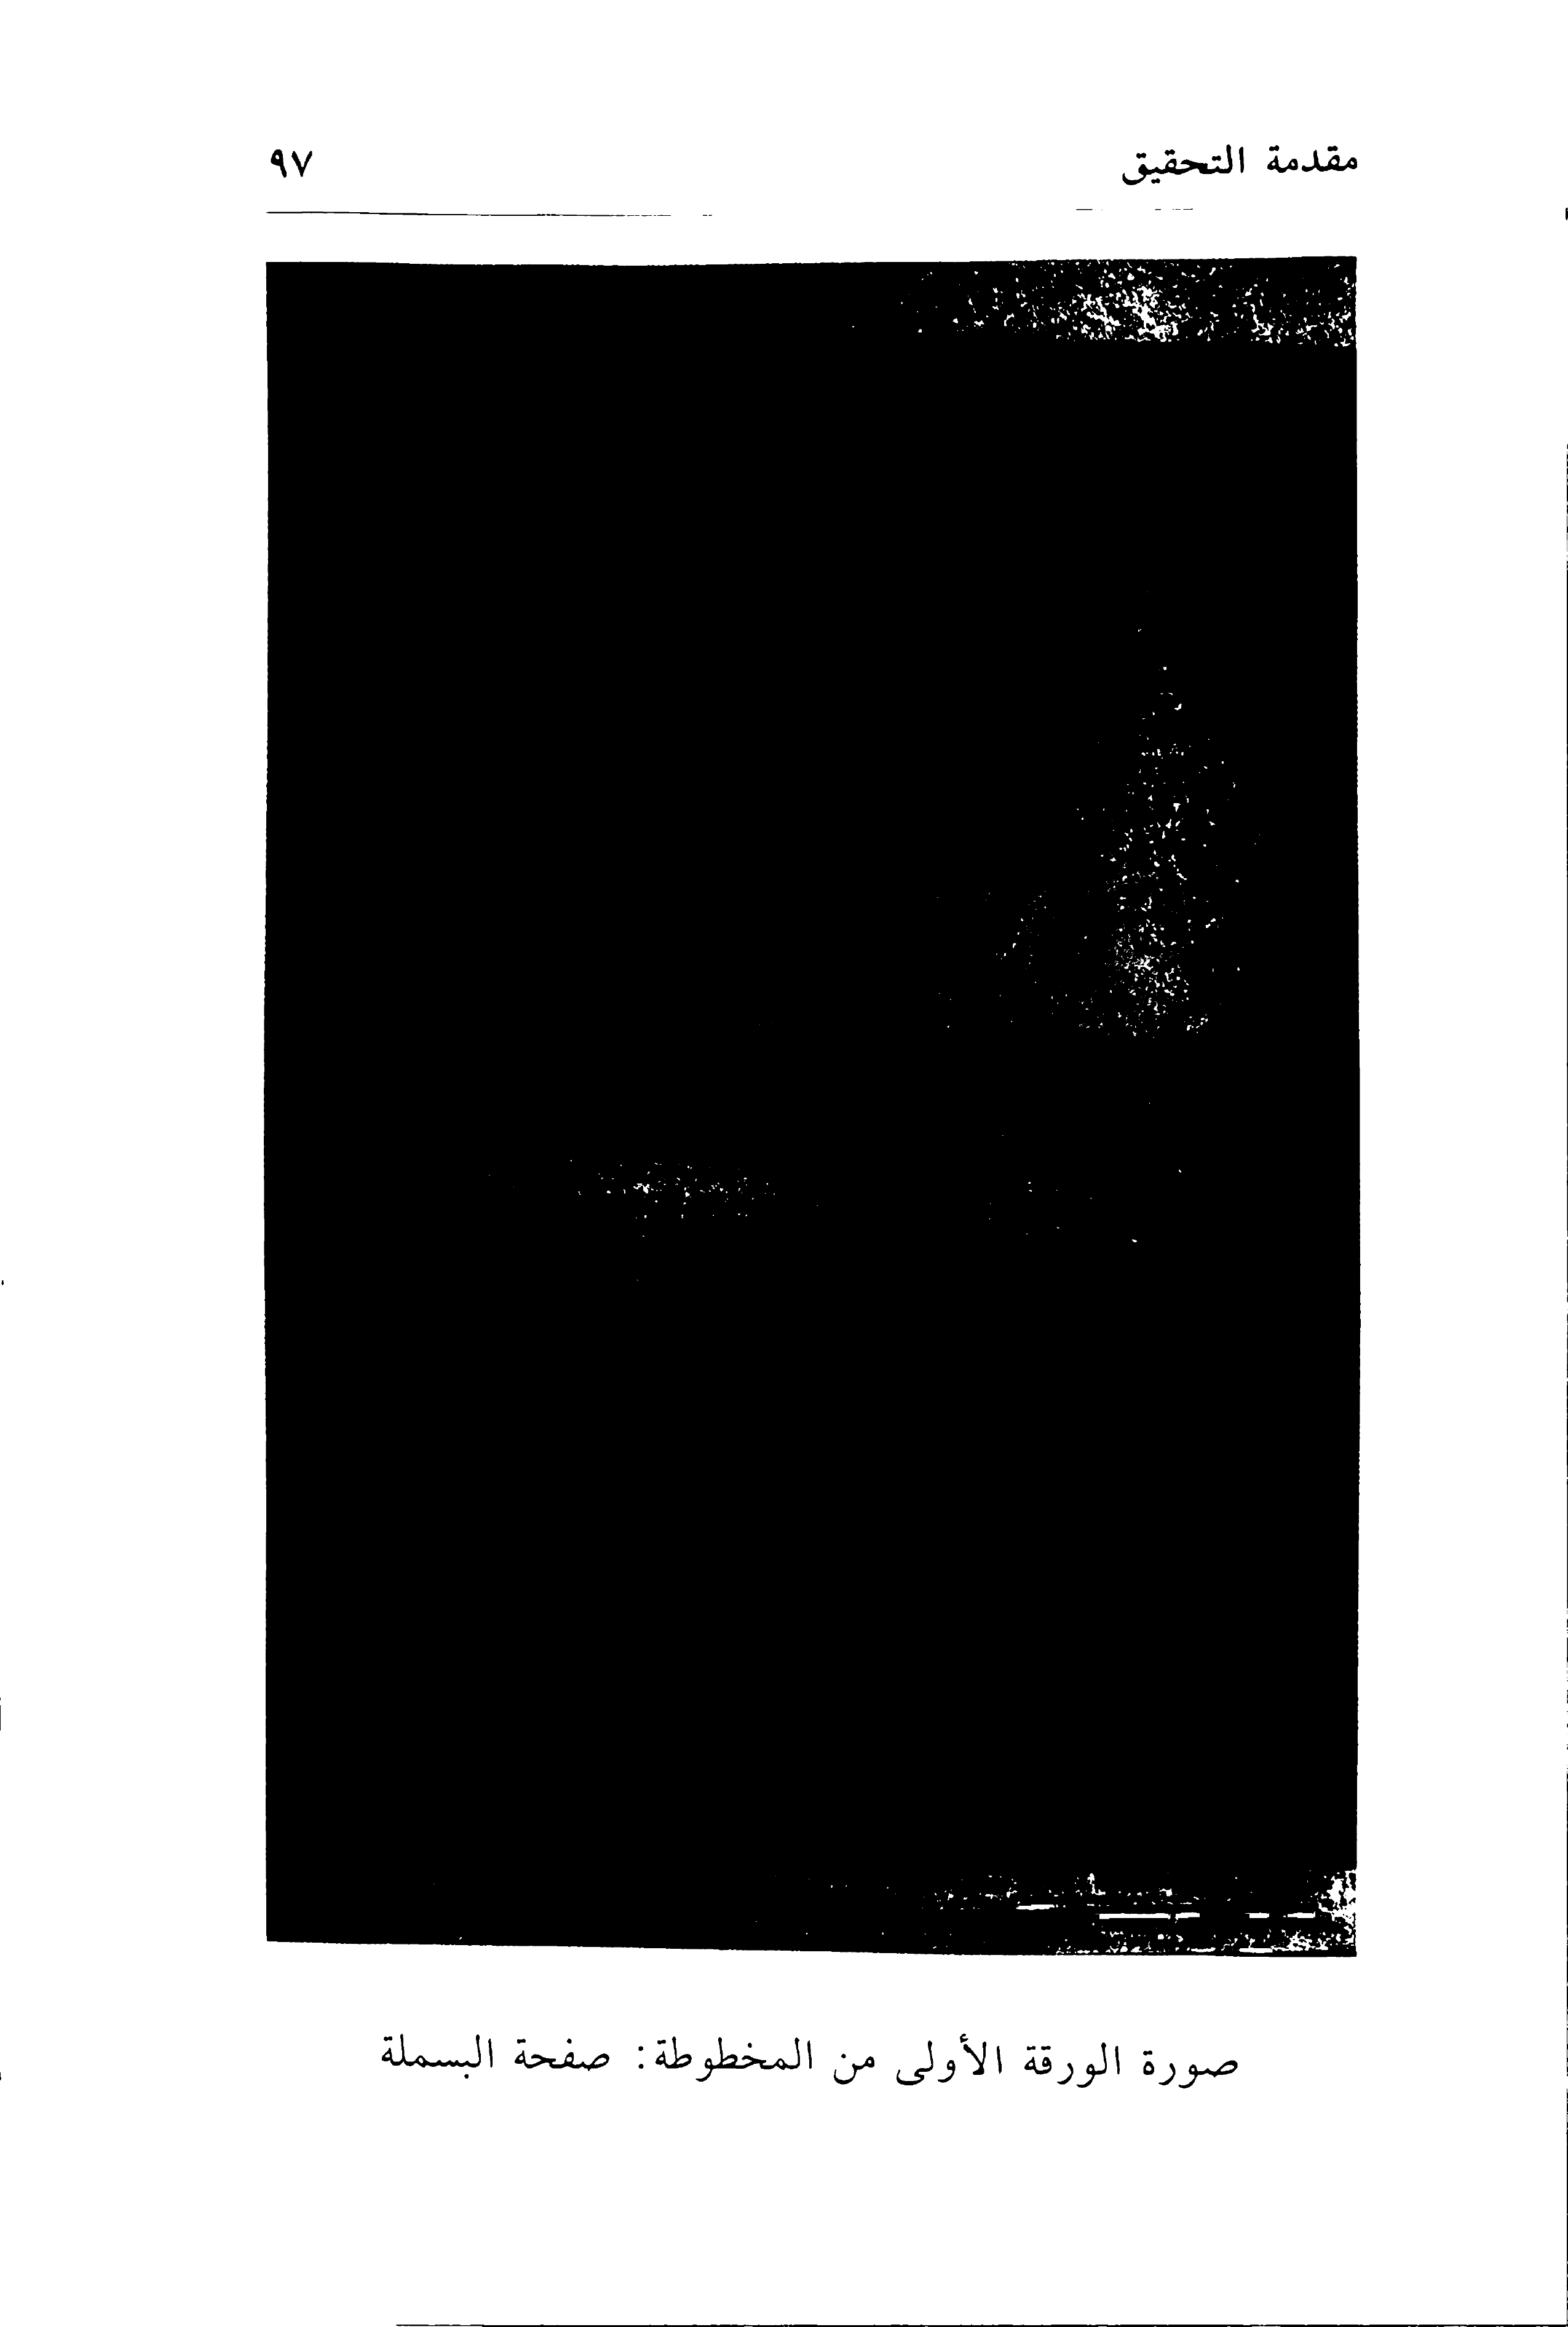 مقدمة التحقيق ٩٧
صورة الورقة الأولى من المخطوطة: صفحة البسملة